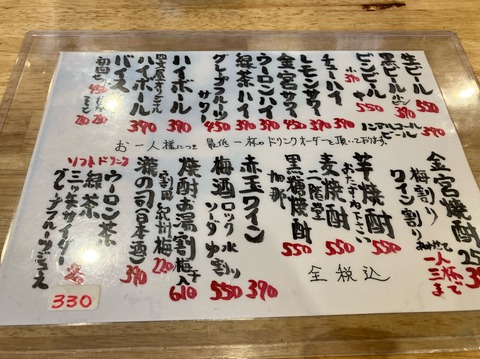 生ビール 550
黒ビール 小ビン 390
ビンビール 中 550
ノンアルコールビール 390
チューハイ 390
レモンサワー 450
金宮ハイ 390
ウーロンハイ 390
緑茶ハイ 390
グレープフルーツサワー 450
ハイボール 390
ハイボール 390
バイス
お一人様につき 最低一杯のドリンクオーダーを頂いております。
金宮焼酎
梅割り
ワイン割り
一人三杯まで
芋焼酎 550
麦焼酎 二階堂 550
黒糖焼酎 550
赤玉ワイン 390
梅酒 ロック 水 ソーダ 割り 550
焼酎お湯割 梅干入 610
紀州梅 220
瀧の司(日本酒) 390
ソフトドリンク
ウーロン茶
緑茶
三ツ矢サイダー
グレープフルーツジュース
各
330
全税込